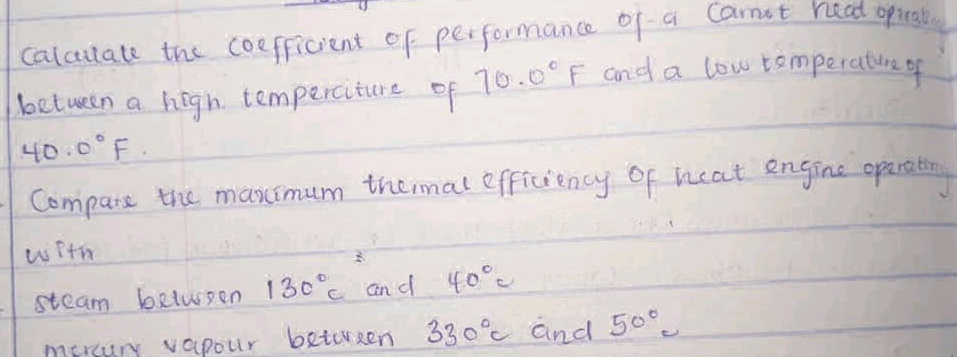 Calculate the coefficient of performance of a Carnot head operating
between a high temperciture of 70.0°F and a low temperature of
40.0°F.
Compare the maximum thermal efficiency of heat engine operating
with
steam between 130°c and 40°c
mercury vapour between 330°c and 50°c